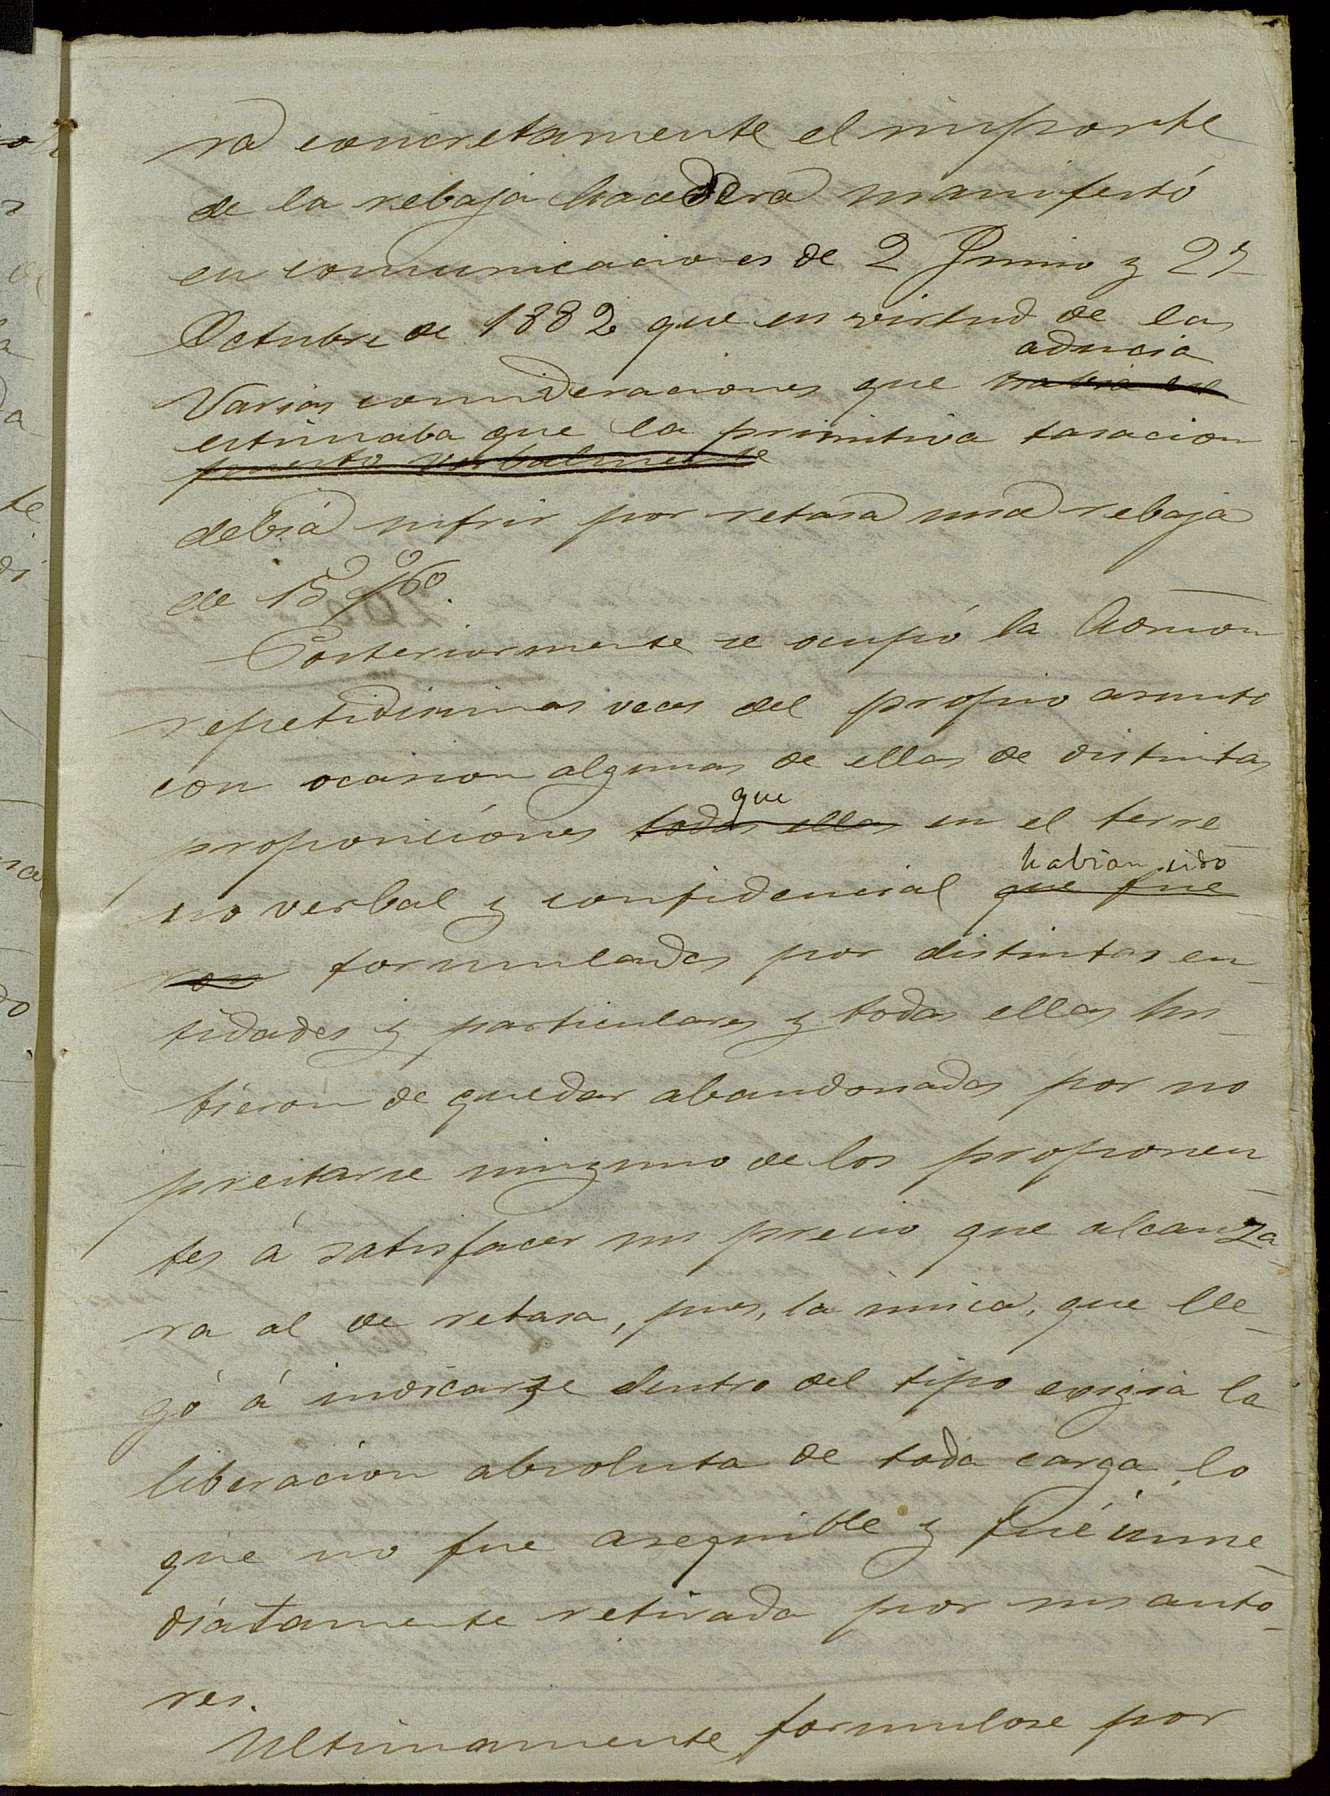 ra concretamente el importe
de la rebaja hacedera manifestó
en comunicaciones de 2 Junio y 27
Octubre de 1882 que en virtud de las
aducia
varias consideraciones que habia ex
estimaba que la primitiva tasacion
puesto verbalmente
debia sufrir por retasa una rebaja
de 15 p%.
Posteriormente se ocupó la Admon
repetidisimas veces del propio asunto
con ocasion algunas de ellas de distintas
que
proposiciones todas ellas en el terre
habian sido
no verbal y confidencial que fue
ron formuladas por distintas en
tidades y particulares y todas ellas hu
bieron de quedar abandonadas por no
prestarse ninguno de los proponen
tes á satisfacer un precio que alcanza
ra al de retasa, pues, la única, que lle
gó á indicarse dentro del tipo exigia la
liberación absoluta de toda carga, lo
que no fue asequible y fué inme
diatamente retirada por sus auto
res.
Ultimamente formulose por